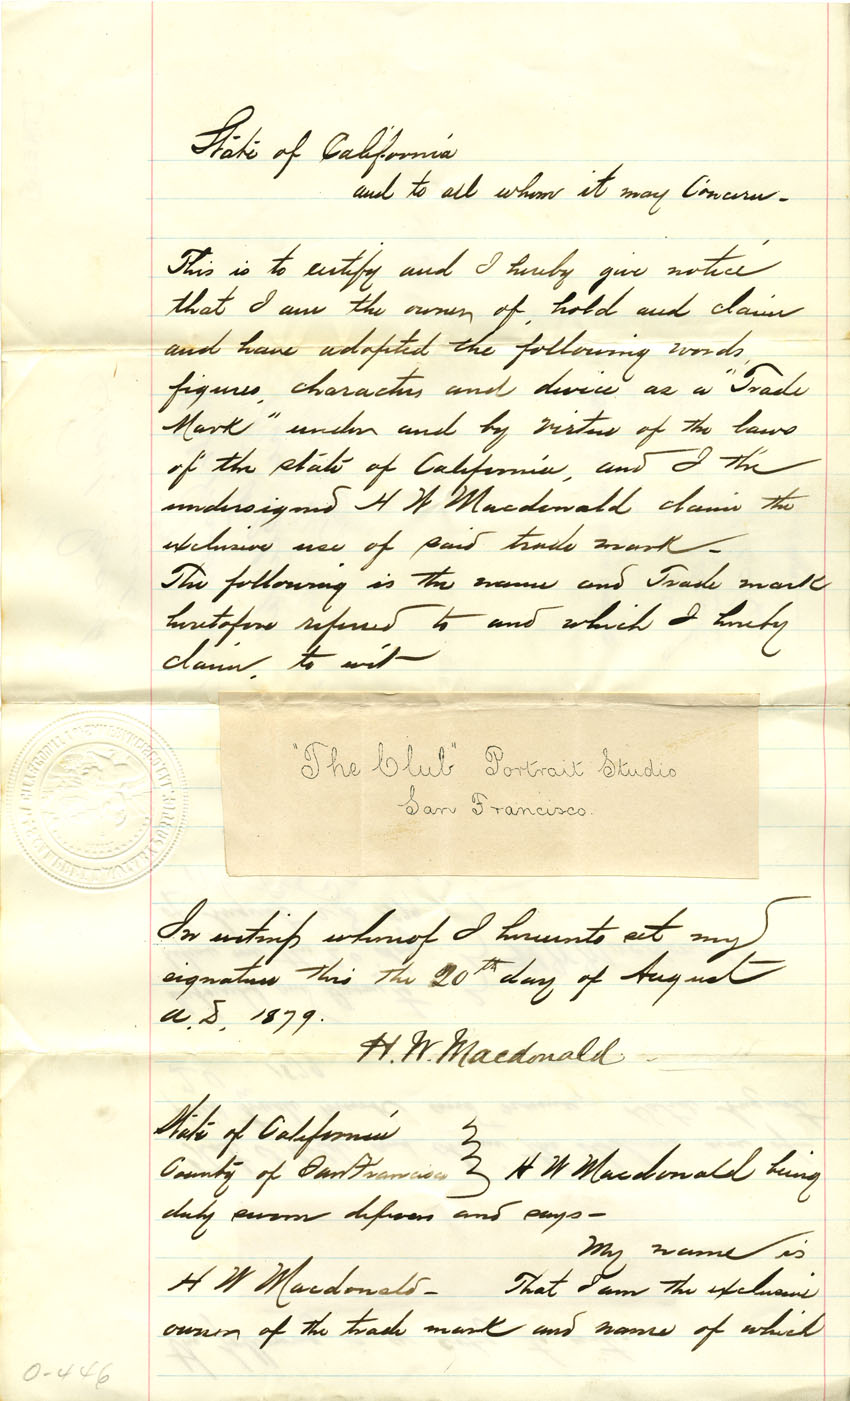 State of California
and to all whom it may Concern -
This is to certify and I hereby give notice
that I am the owner of, hold and claim
and have adopted the following words,
figures, characters and device as a "Trade
Mark" under and by virtue of the laws
of the state of California, and I the
undersigned H W Macdonald claim the
exclusive use of said trade mark -
The following is the name and Trade mark
heretofore referred to and which I hereby
claim, to wit
"The Club" Portrait Studio
San Francisco.
In witness whereof I hereunto set my
signature this the 20th day of August
A.D. 1879.
H. W. Macdonald
State of California
County of San Francisco } H W Macdonald being
duly sworn deposes and says -
My name is
H W Macdonald - That I am the exclusive
owner of the trade mark and name of which
0-446